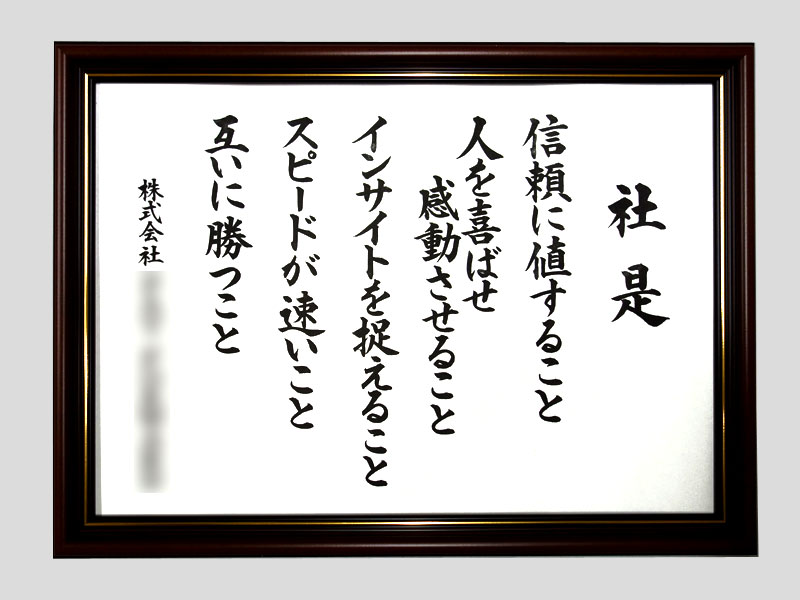 社是
信頼に値すること
人を喜ばせ
感動させること
インサイトを捉えること
スピードが速いこと
互いに勝つこと
株式会社